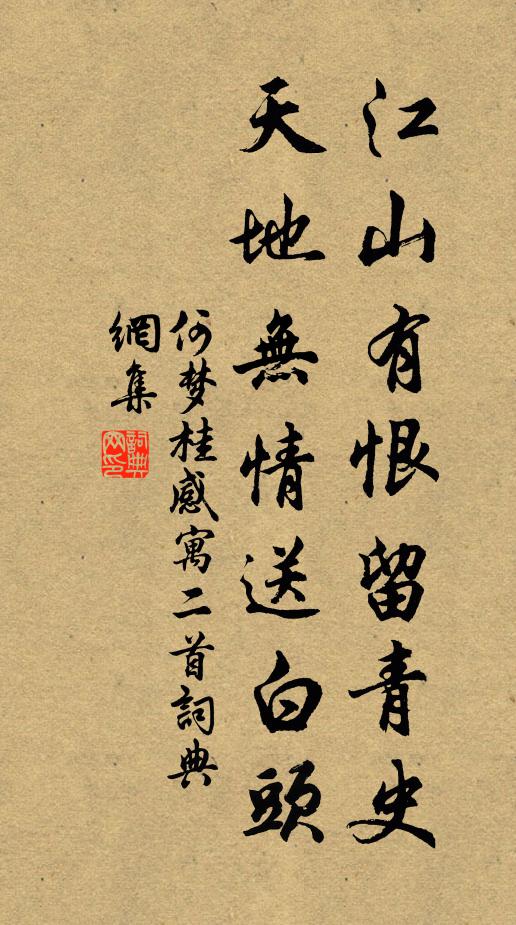 江山有恨留青史
天地無情送白頭
何梦桂感寓二首詞典
網集
詞典
网印